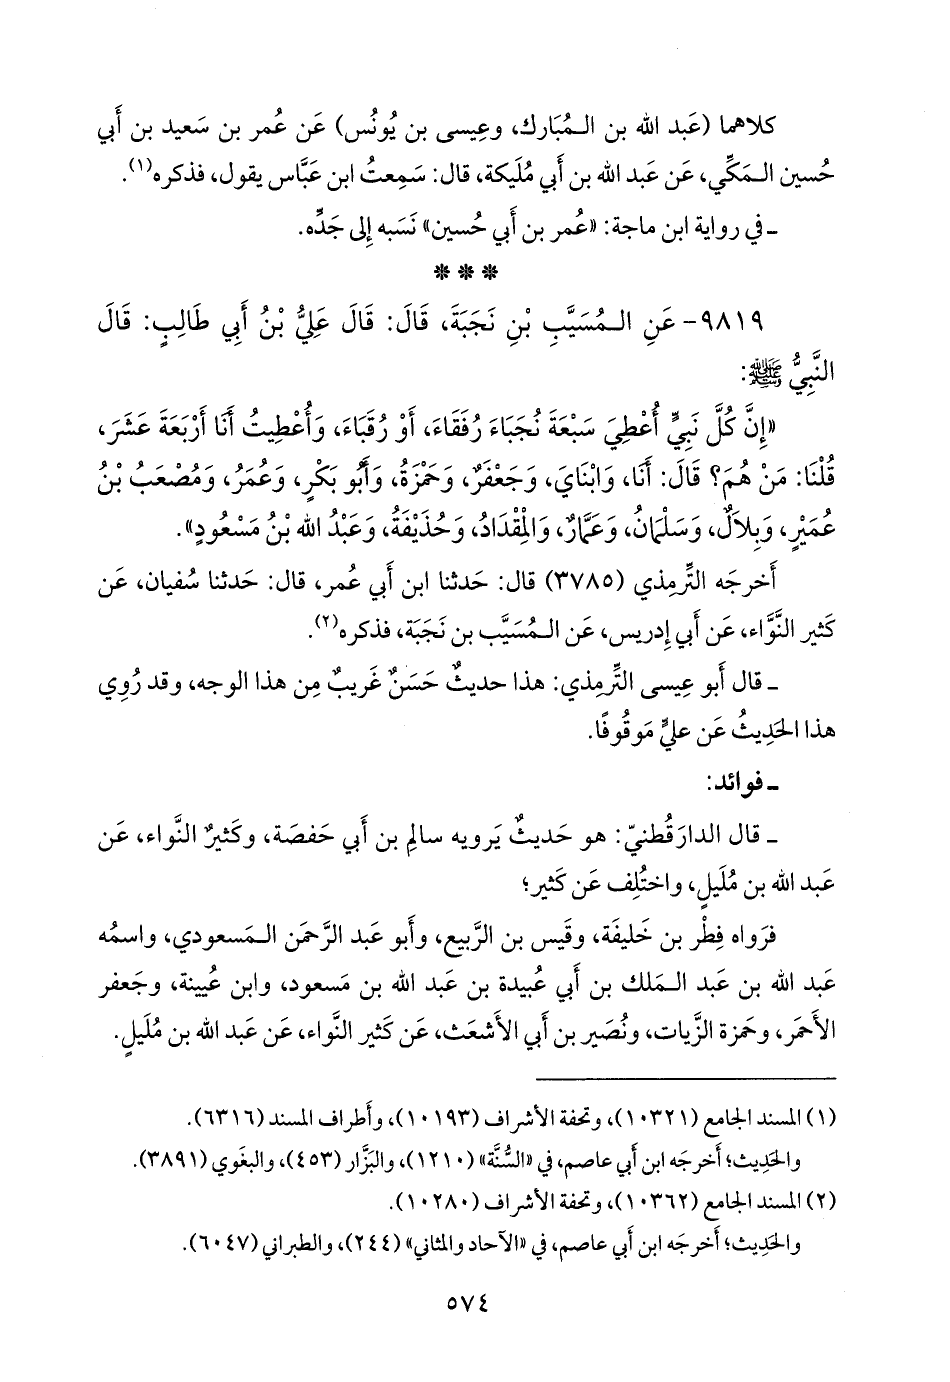 كلاهما (عَبد الله بن الـمُبَارك، وعِيسى بن يُونُس) عَن عُمر بن سَعيد بن أَبي
حُسين الـمَكِّي، عَن عَبد الله بن أَبي مُلَيكة، قال: سَمِعتُ ابن عَبَّاس يقول، فذكره(١).
ـ في رواية ابن ماجة: «عُمر بن أَبي حُسين» نَسَبه إِلى جَدِّه.
* * *
٩٨١٩- عَنِ الـمُسَيَّبِ بْنِ نَجَبَةَ، قَالَ: قَالَ عَلِيُّ بْنُ أَبِي طَالِبٍ: قَالَ
النَّبِيُّ ﷺ:
«إِنَّ كُلَّ نَبِيٍّ أُعْطِيَ سَبْعَةَ نُجَبَاءَ رُفَقَاءَ، أَوْ رُقَبَاءَ، وَأُعْطِيتُ أَنَا أَرْبَعَةَ عَشَرَ،
قُلْنَا: مَنْ هُمْ؟ قَالَ: أَنَا، وَابْنَايَ، وَجَعْفَرٌ، وَحَمْزَةُ، وَأَبُو بَكْرٍ، وَعُمَرُ، وَمُصْعَبُ بْنُ
عُمَيْرٍ، وَبِلاَلٌ، وَسَلْمَانُ، وَعَمَّارٌ، وَالْمِقْدَادُ، وَحُذَيْفَةُ، وَعَبْدُ الله بْنُ مَسْعُودٍ».
أَخرجَه التِّرمِذي (٣٧٨٥) قال: حَدثنا ابن أَبي عُمر، قال: حَدثنا سُفيان، عَن
كَثير النَّوَّاء، عَن أَبي إِدريس، عَن الـمُسَيَّب بن نَجَبَة، فذكره(٢).
ـ قال أَبو عِيسى التِّرمِذي: هذا حديثٌ حَسَنٌ غَريبٌ مِن هذا الوجه، وقد رُوِي
هذا الحَدِيثُ عَن عليٍّ مَوقُوفًا.
ـ فوائد:
ـ قال الدارَقُطنيّ: هو حَديثٌ يَرويه سالم بن أَبي حَفصَة، وكَثيرٌ النَّواء، عَن
عَبد الله بن مُلَيلٍ، واختُلِف عَن كَثير؛
فرَواه فِطْر بن خَليفَة، وقَيس بن الرَّبيع، وأَبو عَبد الرَّحمَن الـمَسعودي، واسمُه
عَبد الله بن عَبد الـمَلك بن أَبي عُبيدة بن عَبد الله بن مَسعود، وابن عُيينة، وجَعفر
الأَحمَر، وحَمزة الزَّيات، ونُصَير بن أَبي الأَشعَث، عَن كَثير النَّواء، عَن عَبد الله بن مُلَيلٍ.
(١) المسند الجامع (١٠٣٢١)، وتحفة الأشراف (١٠١٩٣)، وأَطراف المسند (٦٣١٦).
والحَدِيث؛ أَخرجَه ابن أَبي عاصم، في «السُّنَّة» (١٢١٠)، والبَزَّار (٤٥٣)، والبغَوي (٣٨٩١).
(٢) المسند الجامع (١٠٣٦٢)، وتحفة الأشراف (١٠٢٨٠).
والحَدِيث؛ أَخرجَه ابن أَبي عاصم، في «الآحاد والمثاني» (٢٤٤)، والطبراني (٦٠٤٧).
٥٧٤